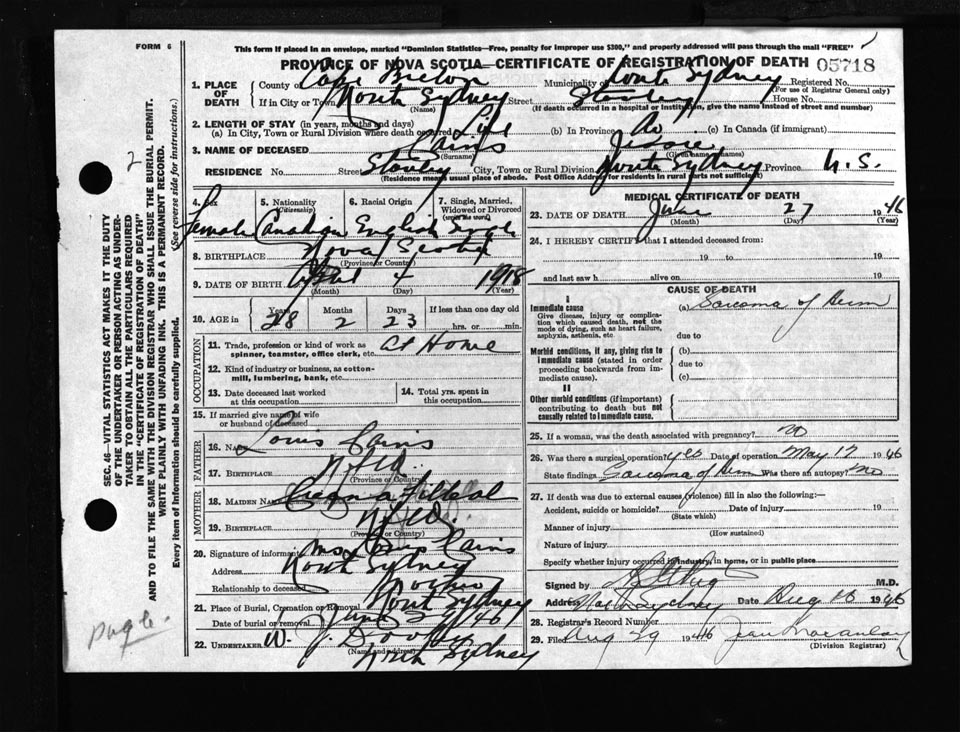 FORM 6
This form if placed in an envelope, marked "Dominion Statistics—Free, penalty for improper use $300," and properly addressed will pass through the mail "FREE"
PROVINCE OF NOVA SCOTIA—CERTIFICATE OF REGISTRATION OF DEATH 05718
1. PLACE OF DEATH County of Cape Breton Municipality of North Sydney Registered No. (For use of Registrar General only)
If in City or Town North Sydney (Name) Street Stanley House No.
(If death occurred in a hospital or institution, give the name instead of street and number)
2. LENGTH OF STAY (in years, months and days)
(a) In City, Town or Rural Division where death occurred Life (b) In Province do (c) In Canada (if immigrant)
3. NAME OF DECEASED Cains (Surname) Jessie (Given name or names)
RESIDENCE No. Street Stanley City, Town or Rural Division North Sydney Province N.S.
(Residence means usual place of abode. Post Office Address for residents in rural parts not sufficient)
4. Sex Female
5. Nationality (Citizenship) Canadian
6. Racial Origin English
7. Single, Married, Widowed or Divorced (write the word) Single
8. BIRTHPLACE Nova Scotia (Province or Country)
9. DATE OF BIRTH April (Month) 4 (Day) 1918 (Year)
10. AGE in Years 28 Months 2 Days 23 If less than one day old hrs. or min.
OCCUPATION
11. Trade, profession or kind of work as spinner, teamster, office clerk, etc. at Home
12. Kind of industry or business, as cotton-mill, lumbering, bank, etc.
13. Date deceased last worked at this occupation
14. Total yrs. spent in this occupation
15. If married give name of wife or husband of deceased
FATHER
16. Name Louis Cains
17. Birthplace Nfld. (Province or Country)
MOTHER
18. Maiden Name
19. Birthplace Nfld. (Province or Country)
20. Signature of informant Mrs Louis Cains
Address North Sydney
Relationship to deceased Mother
21. Place of Burial, Cremation or Removal North Sydney
Date of burial or removal June 29/46
22. UNDERTAKER W. J. Dooley
(Name and address) North Sydney
MEDICAL CERTIFICATE OF DEATH
23. DATE OF DEATH (Month) 27 (Day) 1946 (Year)
24. I HEREBY CERTIFY that I attended deceased from:
19 to 19
and last saw h alive on 19
CAUSE OF DEATH
I
Immediate cause (a) Sarcoma of
Give disease, injury or complication which caused death, not the mode of dying, such as heart failure, asphyxia, asthenia, etc.
due to
Morbid conditions, if any, giving rise to immediate cause (stated in order proceeding backwards from immediate cause). (b)
due to
(c)
II
Other morbid conditions (if important) contributing to death but not causally related to immediate cause.
25. If a woman, was the death associated with pregnancy? No
26. Was there a surgical operation? Yes Date of operation May 17 1946
State findings Sarcoma of Was there an autopsy? No
27. If death was due to external causes (violence) fill in also the following:—
Accident, suicide or homicide? Date of injury 19
(State which)
Manner of injury
(How sustained)
Nature of injury
Specify whether injury occurred in industry, in home, or in public place
Signed by M.D.
Address North Sydney Date Aug 1946
28. Registrar's Record Number
29. Filed Aug 29 1946 (Division Registrar)
SEC. 46—VITAL STATISTICS ACT MAKES IT THE DUTY OF THE UNDERTAKER OR PERSON ACTING AS UNDERTAKER TO OBTAIN ALL THE PARTICULARS REQUIRED IN THE "CERTIFICATE OF REGISTRATION OF DEATH" AND TO FILE THE SAME WITH THE DIVISION REGISTRAR WHO SHALL ISSUE THE BURIAL PERMIT.
WRITE PLAINLY WITH UNFADING INK. THIS IS A PERMANENT RECORD.
Every item of Information should be carefully supplied. (See reverse side for instructions.)
2